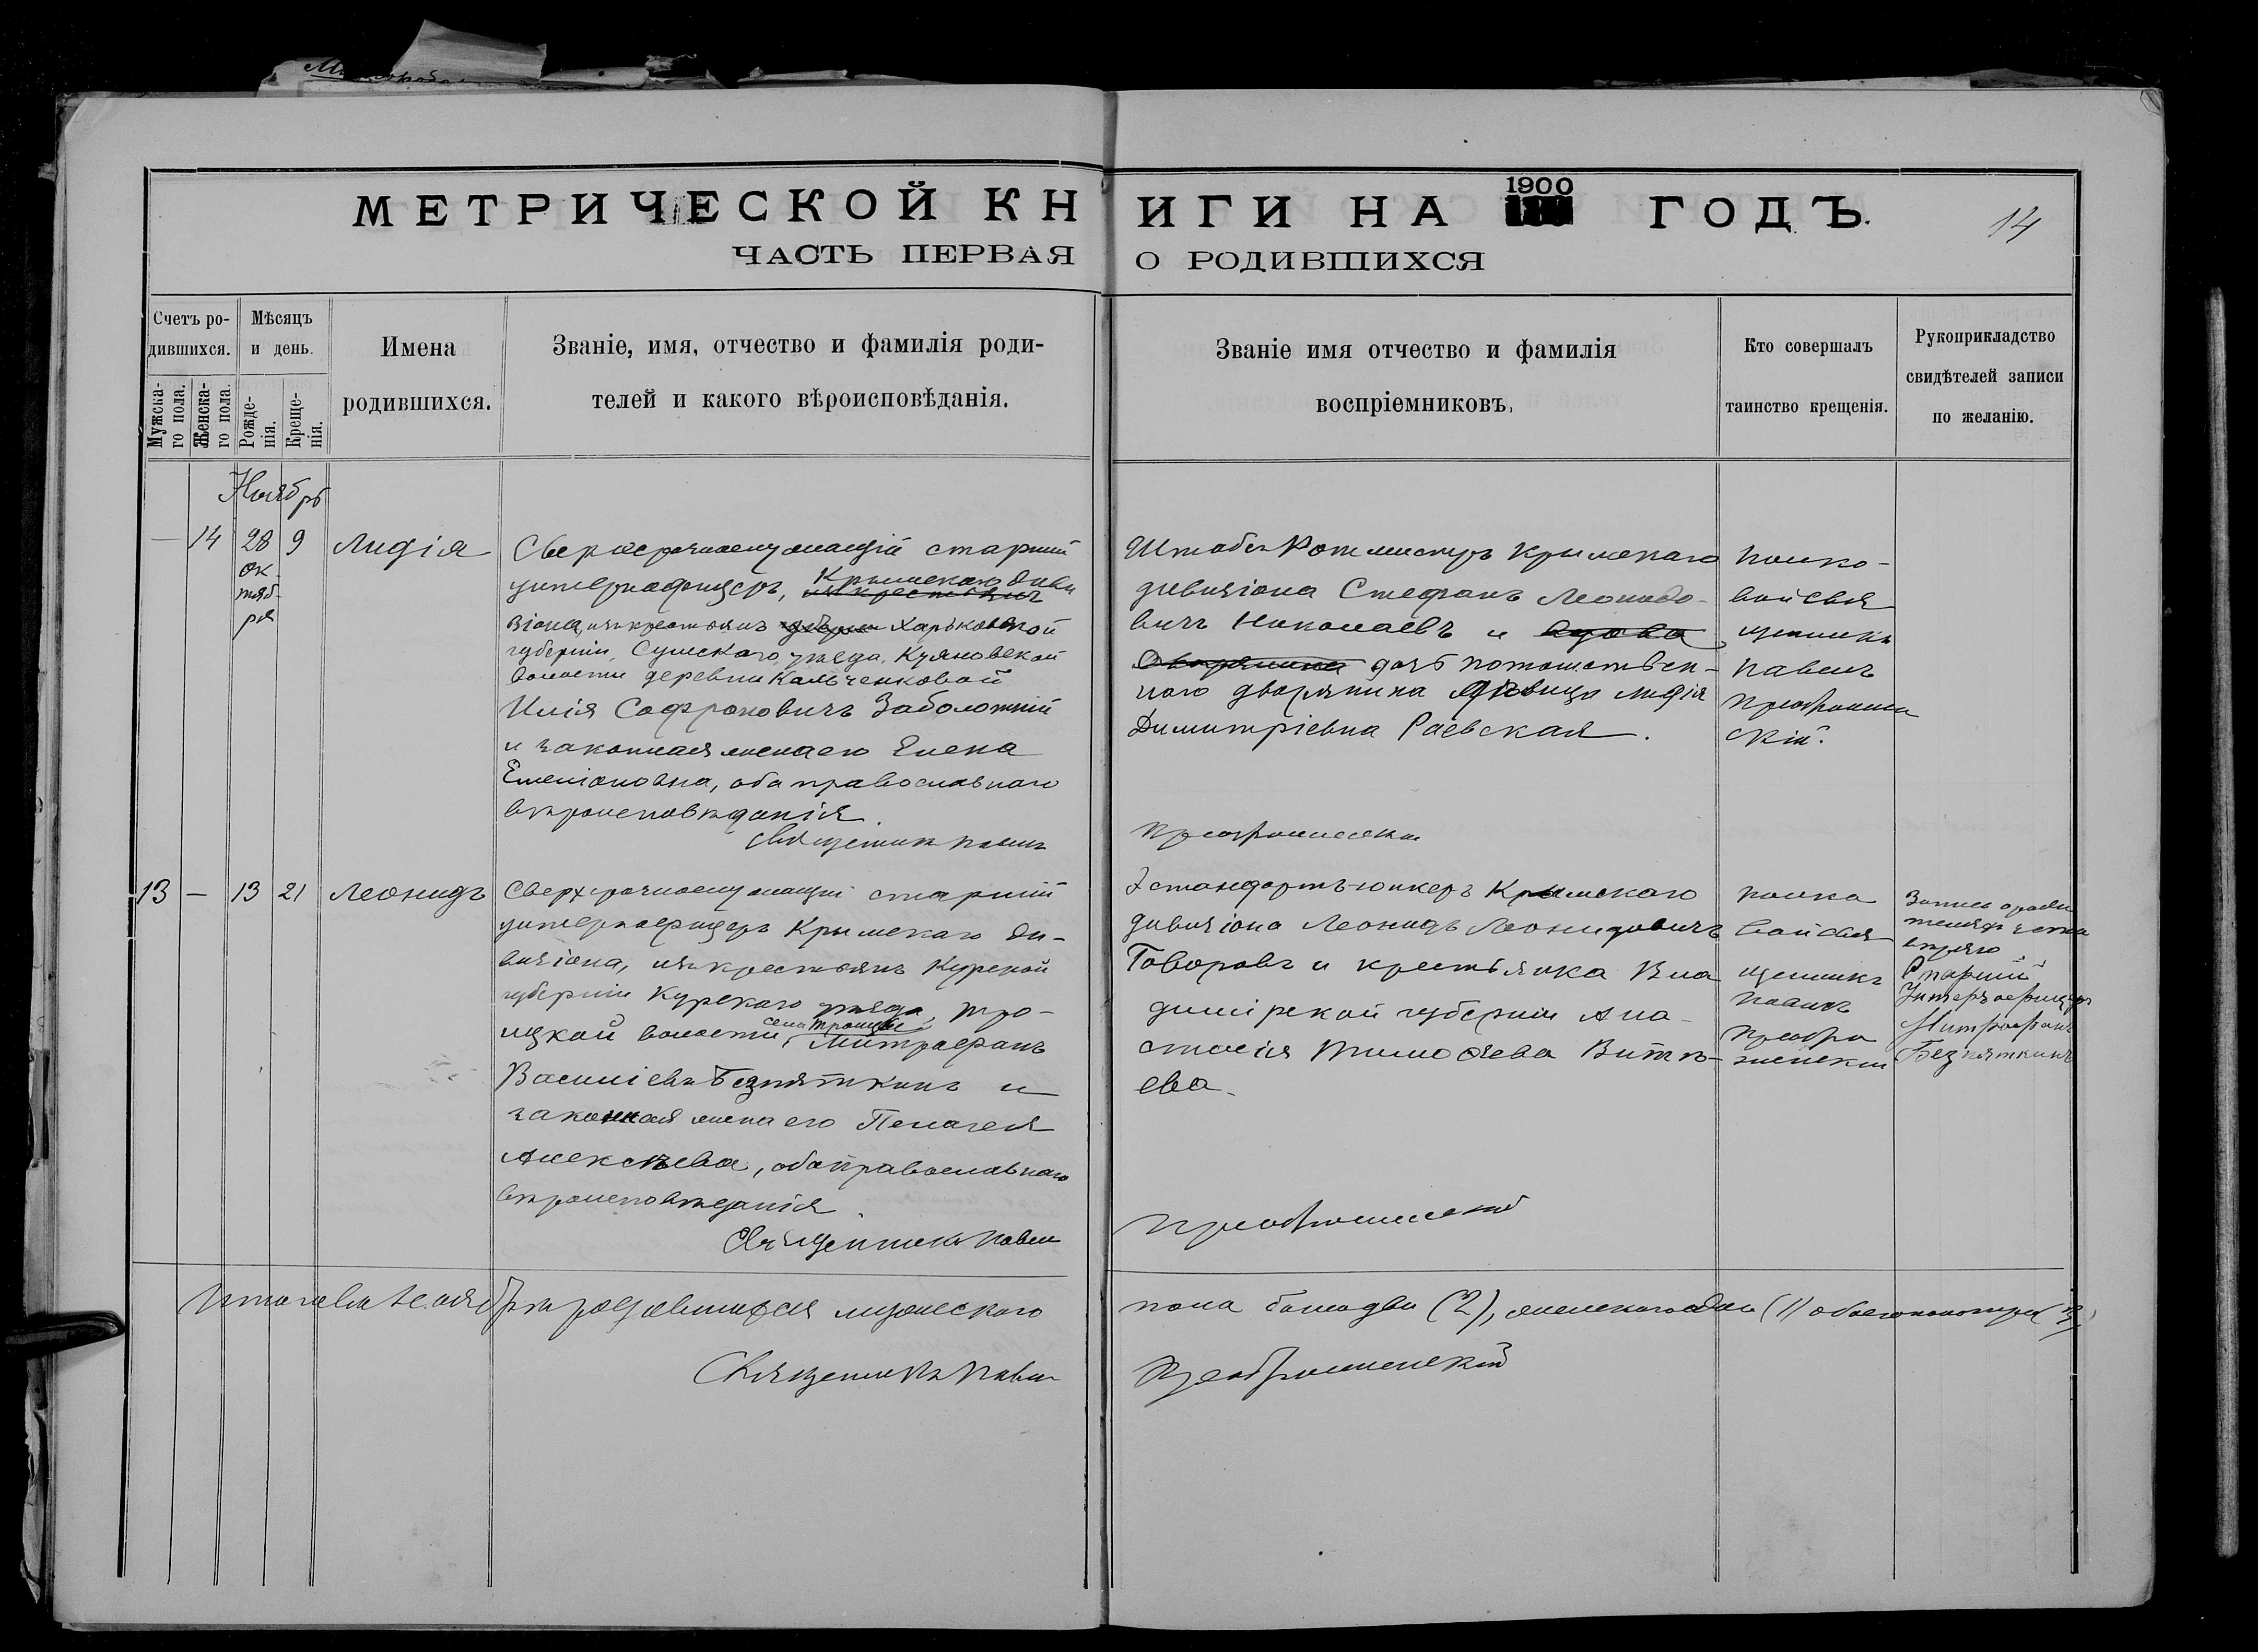 МЕТРИЧЕСКОЙ КНИГИ НА 1900 ГОДЪ.
14
ЧАСТЬ ПЕРВАЯ О РОДИВШИХСЯ
Счетъ ро-
дившихся.
Мужска-
го пола.
Женска-
го пола.
Мѣсяцъ
и день.
Рожде-
нія.
Креще-
нія.
Имена
родившихся.
Званіе, имя, отчество и фамилія роди-
телей и какого вѣроисповѣданія.
Званіе имя отчество и фамилія
воспріемниковъ,
Кто совершалъ
таинство крещенія.
Рукоприкладство
свидѣтелей записи
по желанію.
Ноябрь
— 14 28 9 Лидія
ок-
тяб-
ря
Сверхсрочнослужащій старшій
унтерофицеръ, изъ крестьянъ Крымскаго диви
зіона, изъ крестьянъ Харьковской
губерніи, Сумскаго уѣзда, Куяновской
волости деревни Кальченковой
Илія Софроновичъ Заболотній
и законная жена его Елена
Емеліановна, оба православнаго
вѣроисповѣданія.
Священникъ Павелъ
Штабсъ-Ротмистръ Крымскаго
дивизіона Стефанъ Леонидо-
вичъ Николаевъ и вдова
дворянина дочь потомствен-
наго дворянина дѣвица Лидія
Димитріевна Раевская.
Преображенскій
Полко-
вой свя
щенникъ
Павелъ
Преображен
скій.
13 — 13 21 Леонидъ
Сверхсрочнослужащій старшій
унтерофицеръ Крымскаго ди-
визіона, изъ крестьянъ Курской
губерніи Курскаго уѣзда, Тро-
ицкой волости, села Троицкаго Митрофанъ
Василіевъ Безпяткинъ и
законная жена его Пелагея
Алексѣева, оба православнаго
вѣроисповѣданія.
Священникъ Павелъ
Эстандартъ-юнкеръ Крымскаго
дивизіона Леонидъ Леонидовичъ
Говоровъ и крестьянка Вла
димірской губерніи Ана-
стасія Тимоѳева Витѣ-
ева.
Преображенскій
Полко
вой свя
щенникъ
Павелъ
Преобра
женскій
Запись о роди
теляхъ
вѣрно
Старшій
Унтерофицеръ
Митрофанъ
Безпяткинъ
Итого въ Ноябрѣ родившихся мужескаго пола было два (2), женскаго одна (1) обоего пола три (3)
Священникъ Павелъ Преображенскій